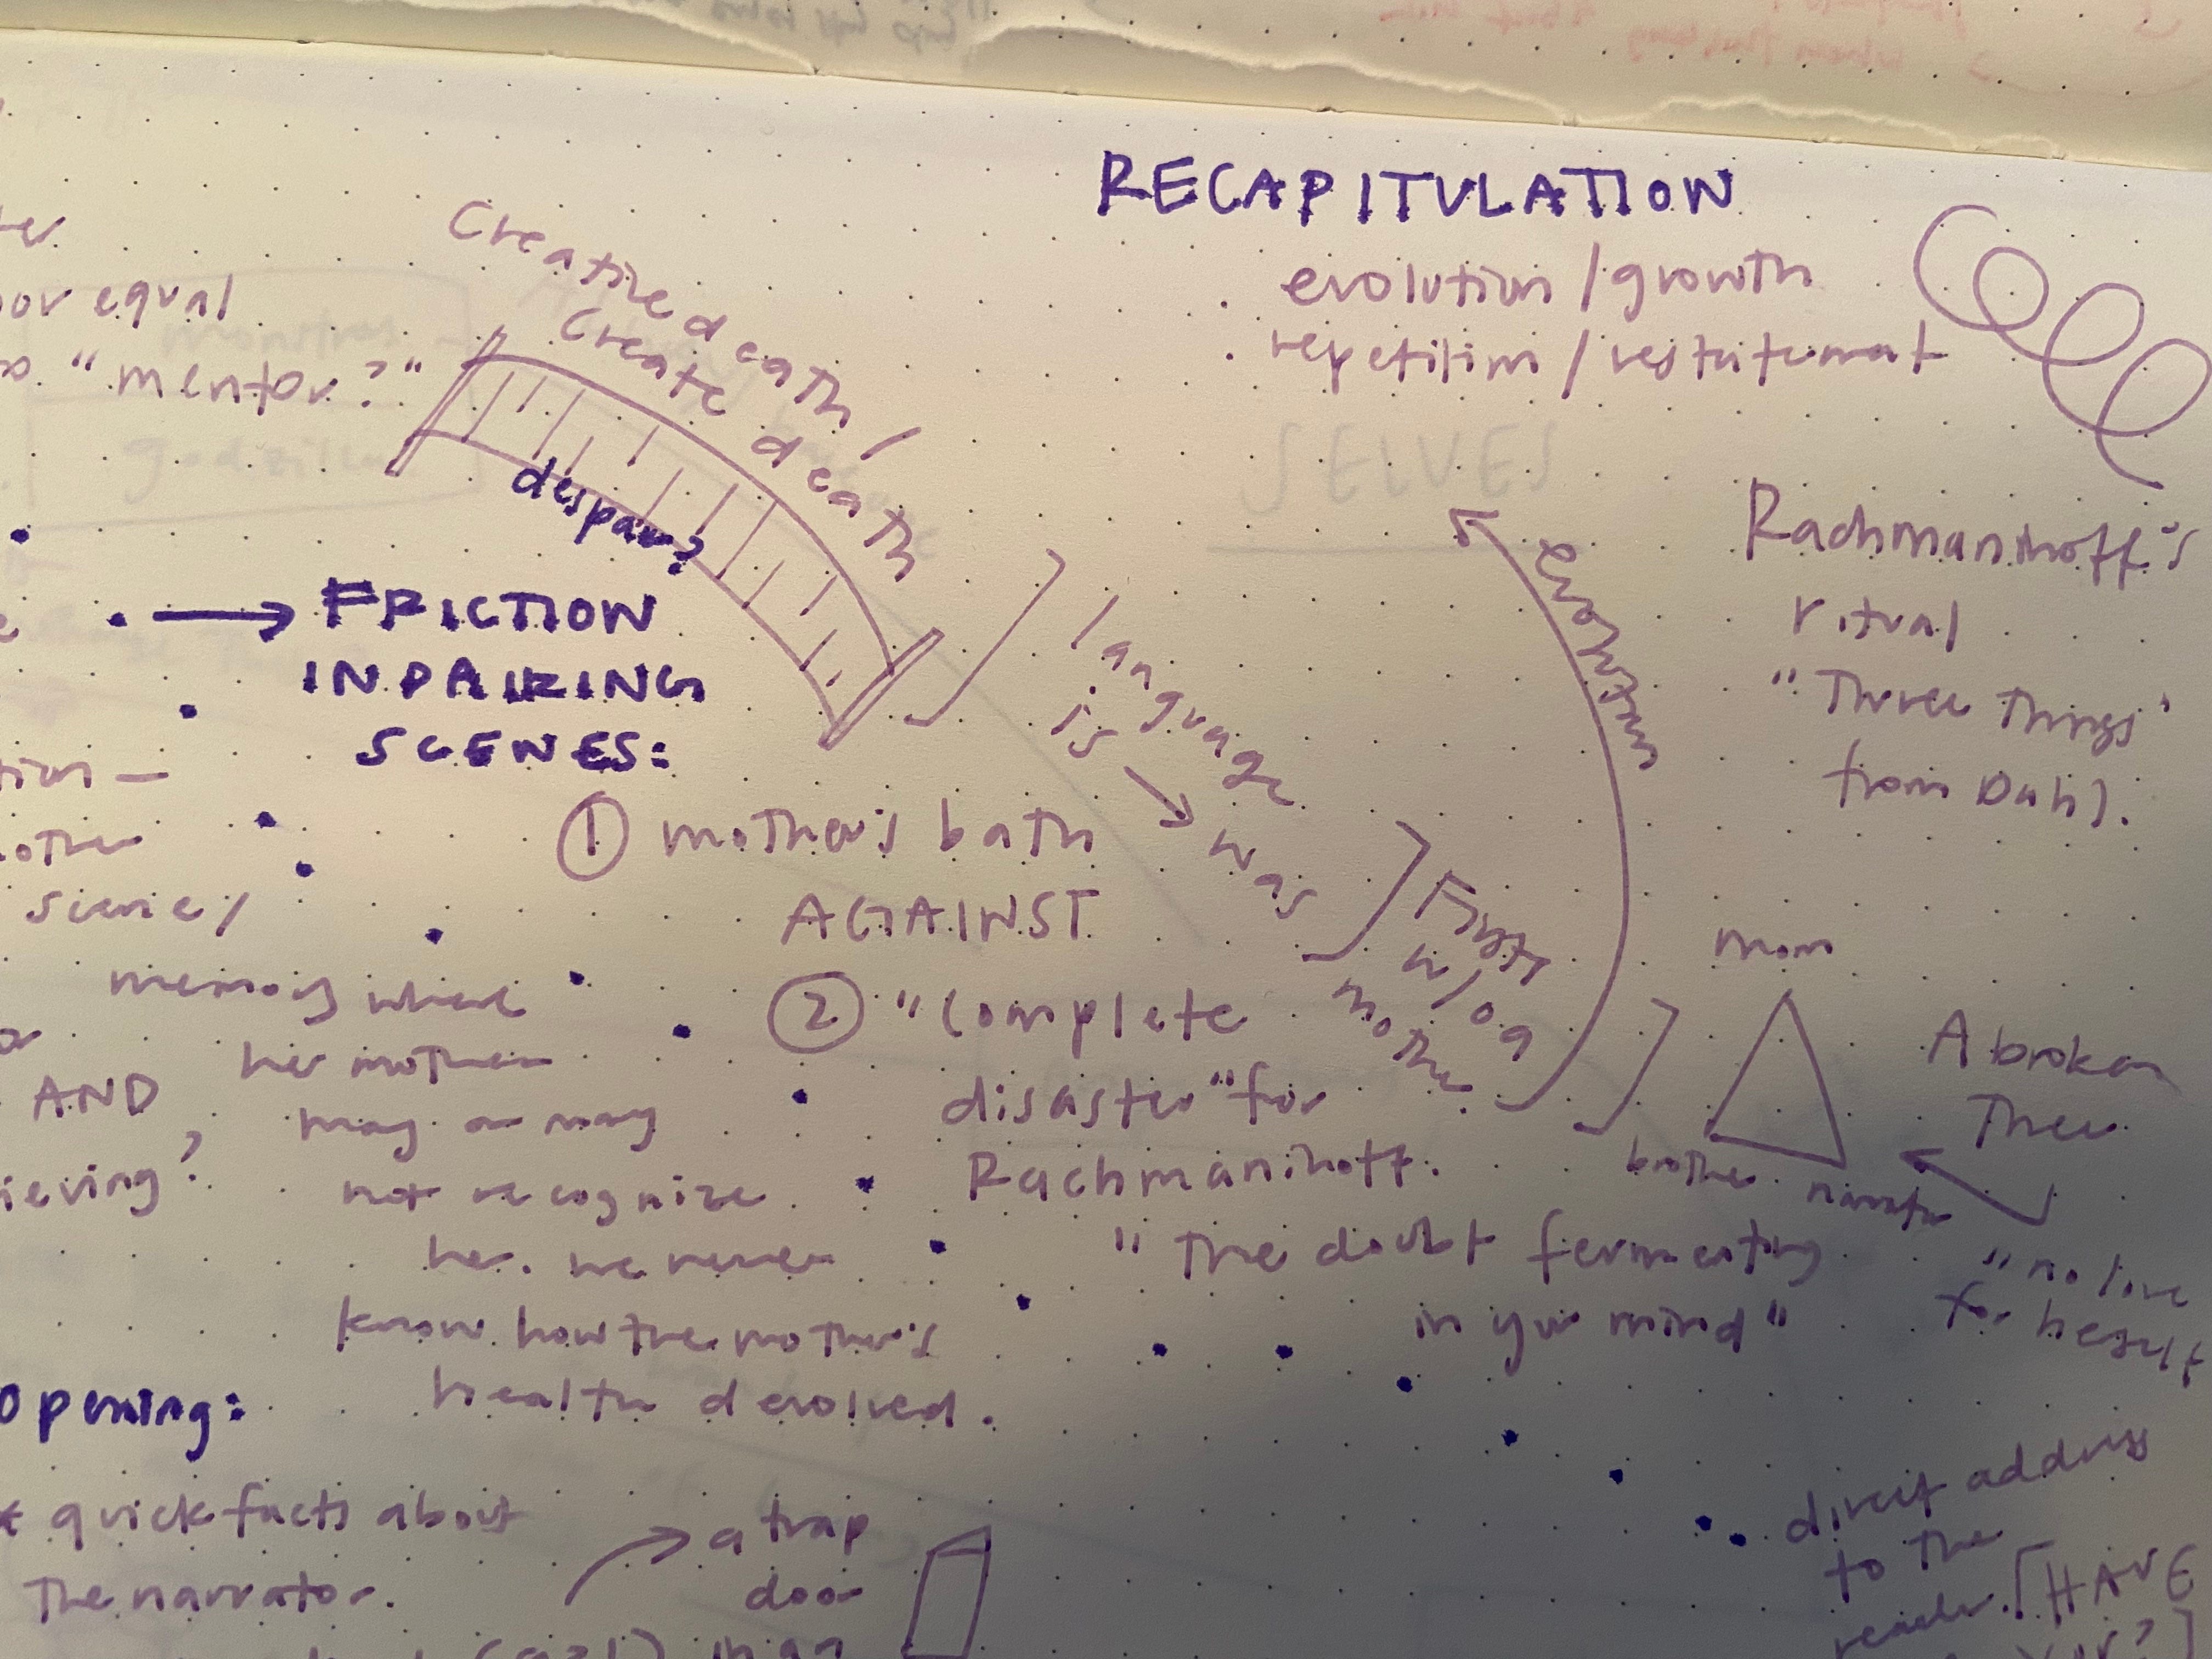 RECAPITULATION
evolution/growth
repetition/restatement
Creative death/
Create death
despair?
or equal
"mentor?"
→ FRICTION
IN PAIRING
SCENES:
① mother's bath
AGAINST
② "complete
disaster" for
Rachmaninoff.
"The doubt fermenting
in your mind"
language
is → was
First
w/o a
mother
evolution
Rachmaninoff's
ritual
"Three Things"
from Dahl.
mom
brother
narrator
A broken
Three
"no love
for herself
scene/
memory where
her mother
may or may
not recognize
her. we never
know how the mother's
health devolved.
AND
ieving?
opening:
quick facts about
The narrator.
a trap
door
direct address
to the
reader. [HAVE